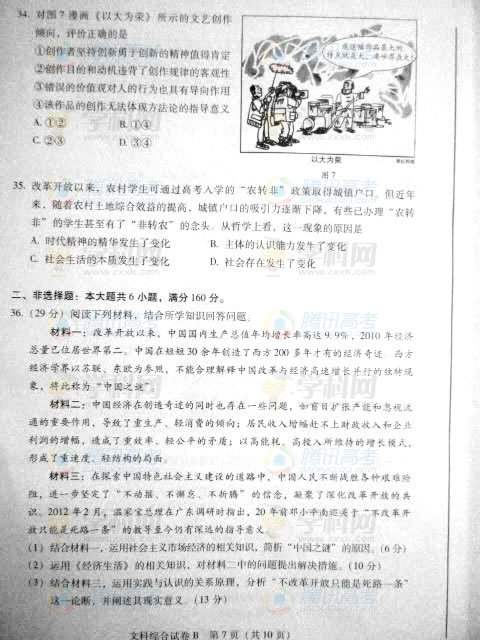 34. 对图7漫画《以大为荣》所示的文艺创作
倾向，评价正确的是
①创作者坚持创新勇于创新的精神值得肯定
②创作目的和动机违背了创作规律的客观性
③错误的价值观对人的行为也具有导向作用
④该作品的创作无法体现方法论的指导意义
A. ①② B. ①④
C. ②③ D. ③④
我这幅作品最大的
特点就是大，要世界最大！
以大为荣
图7
35. 改革开放以来，农村学生可通过高考入学的“农转非”政策取得城镇户口。但近年
来，随着农村土地综合效益的提高，城镇户口的吸引力逐渐下降，有些已办理“农转
非”的学生甚至有了“非转农”的念头。从哲学上看，这一现象的原因是
A. 时代精神的精华发生了变化 B. 主体的认识能力发生了变化
C. 社会生活的本质发生了变化 D. 社会存在发生了变化
二、非选择题：本大题共6小题，满分160分。
36. (29分) 阅读下列材料，结合所学知识回答问题。
材料一：改革开放以来，中国国内生产总值年均增长率高达9.9%，2010年经济
总量已位居世界第二。中国在短短30余年创造了西方200多年才有的经济奇迹。西方
经济学界以苏联、东欧为参照，不能合理解释中国改革与经济高速增长并行的独特现
象，将此称为“中国之谜”。
材料二：中国经济在创造奇迹的同时也存在一些问题，如盲目扩张产能和忽视流
通的重要作用，导致了重生产、轻消费的倾向；居民收入增幅赶不上财政收入和企业
利润的增幅，造成了重效率、轻公平的矛盾；以高能耗、高投入所维持的增长模式，
形成了重速度、轻结构的局面。
材料三：在探索中国特色社会主义建设的道路中，中国人民不断战胜各种艰难险
阻，进一步坚定了“不动摇、不懈怠、不折腾”的信念，凝聚了深化改革开放的共
识。2012年2月，温家宝总理在广东调研时指出，20年前邓小平南巡关于“不改革开
放只能是死路一条”的教导至今仍有深远的指导意义。
(1) 结合材料一，运用社会主义市场经济的相关知识，简析“中国之谜”的原因。(6分)
(2) 运用《经济生活》的相关知识，对材料二中的问题提出解决措施。(10分)
(3) 结合材料三，运用实践与认识的关系原理，分析“不改革开放只能是死路一条”
这一论断，并阐述其现实意义。(13分)
文科综合试卷B 第7页（共10页）
学科网
www.zxxk.com
腾讯高考